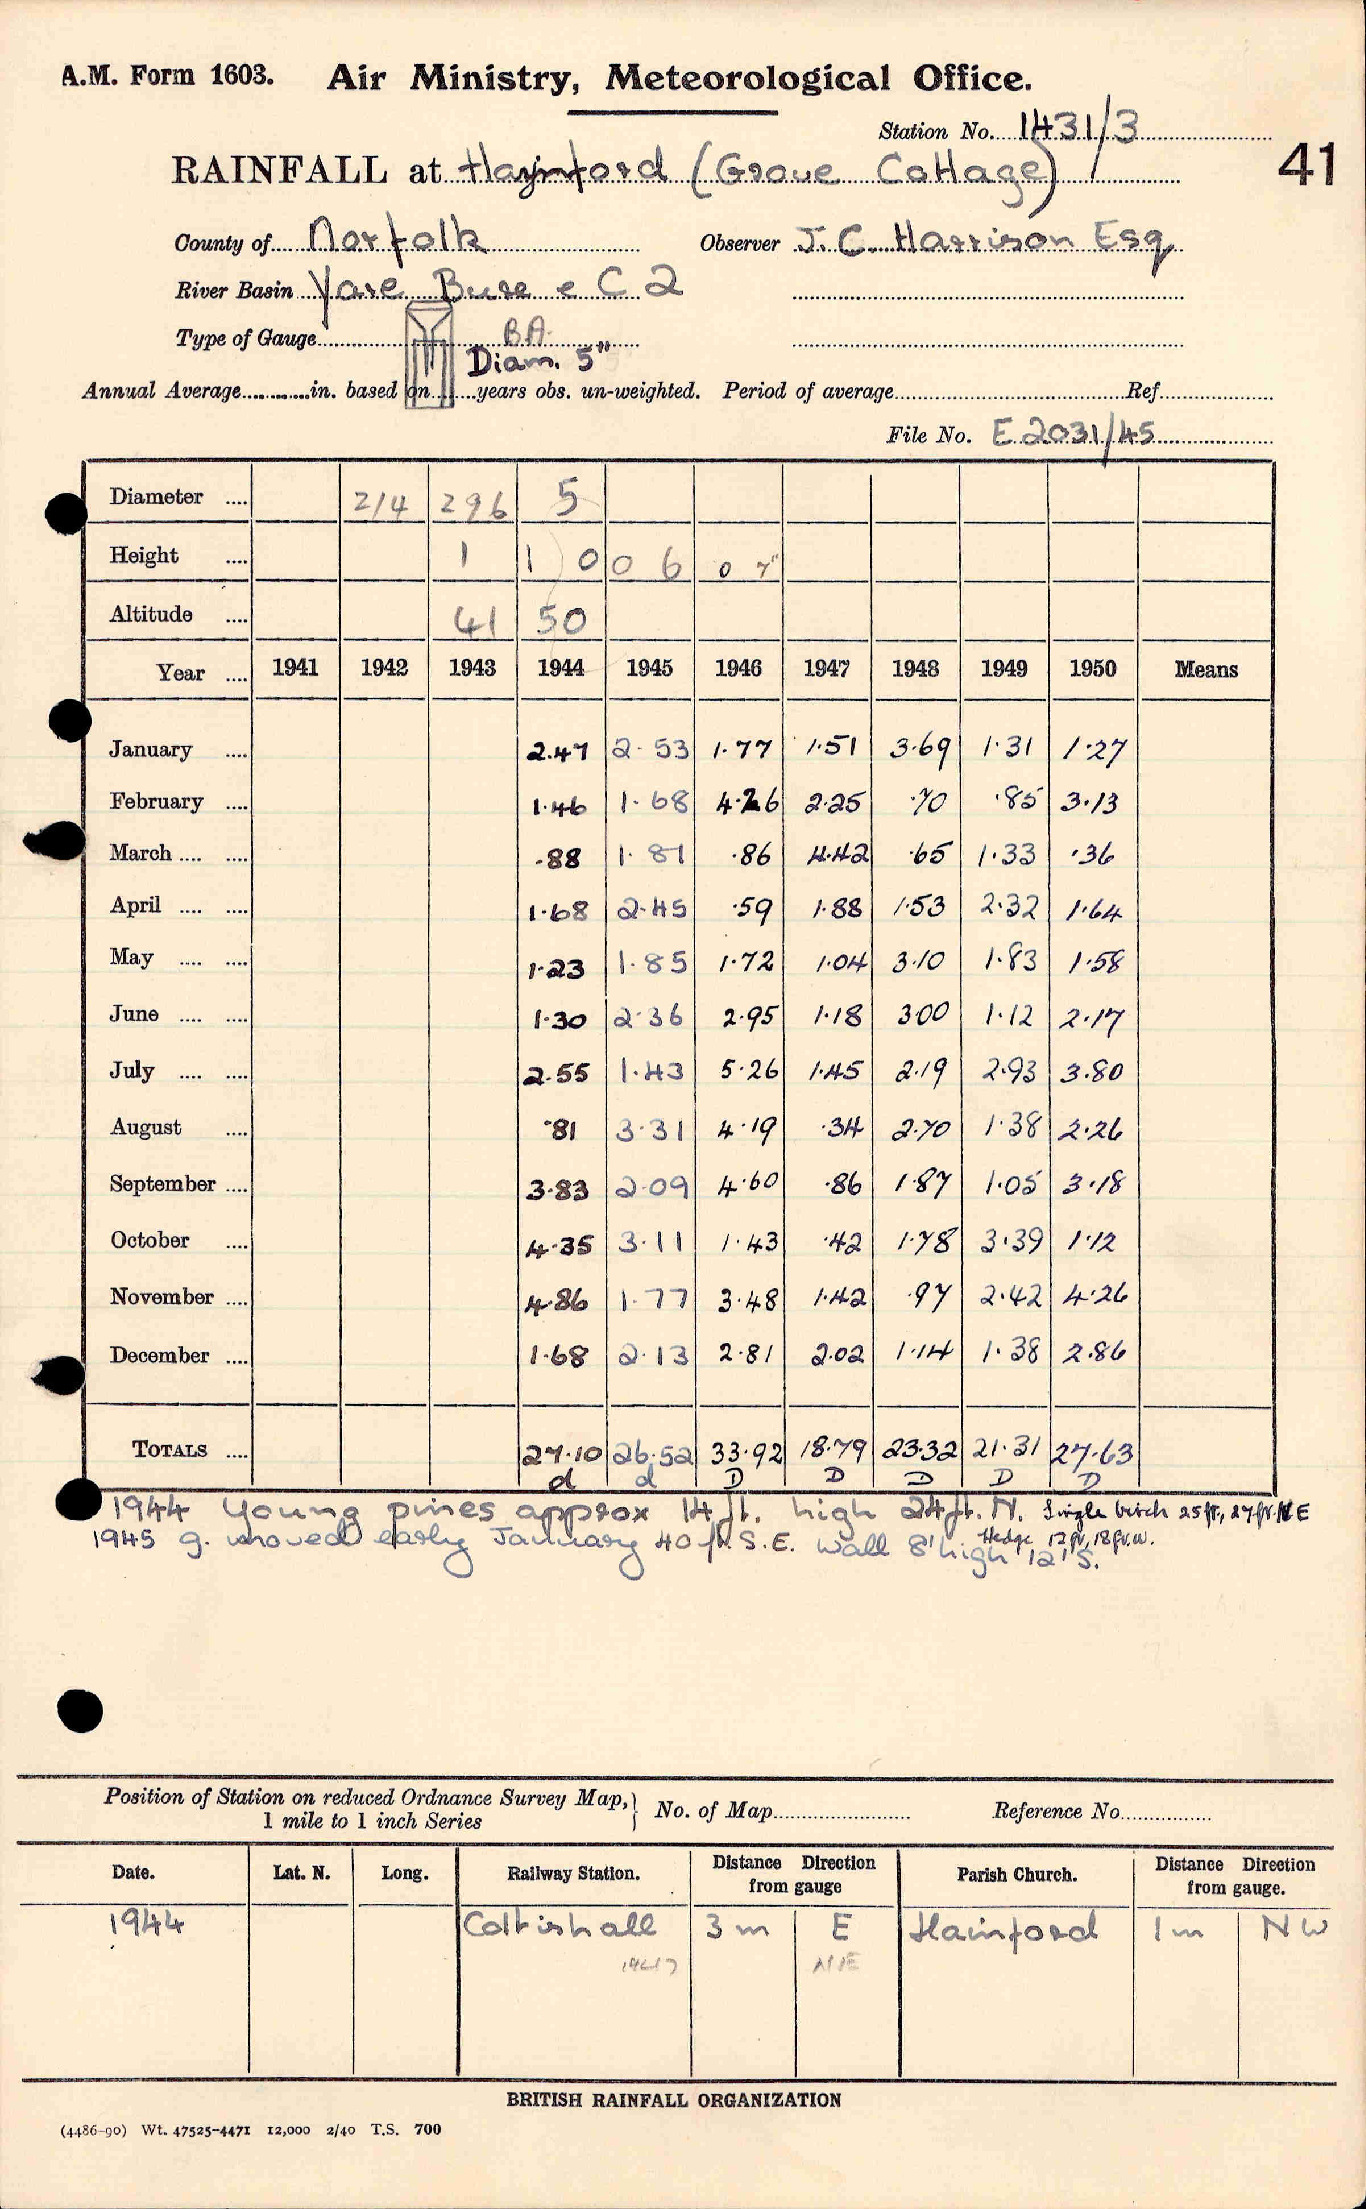 A.M. Form 1603. Air Ministry, Meteorological Office.
Station No. 1431/3
41
RAINFALL at Haynford (Grove Cottage)
County of Norfolk Observer J. C. Harrison Esq
River Basin Yare Bure e C 2
Type of Gauge B.A.
Diam. 5"
Annual Average............in. based on......years obs. un-weighted. Period of average............ Ref............
File No. E 2031/45
Diameter .... 214 296 5
Height .... 1 1 0 0 6 0 7"
Altitude .... 41 50
Year .... 1941 1942 1943 1944 1945 1946 1947 1948 1949 1950 Means
January .... 2.47 2.53 1.77 1.51 3.69 1.31 1.27
February .... 1.46 1.68 4.26 2.25 .70 .85 3.13
March .... .... .88 1.81 .86 4.42 .65 1.33 .36
April .... .... 1.68 2.45 .59 1.88 1.53 2.32 1.64
May .... .... 1.23 1.85 1.72 1.04 3.10 1.83 1.58
June .... .... 1.30 2.36 2.95 1.18 3.00 1.12 2.17
July .... .... 2.55 1.43 5.26 1.45 2.19 2.93 3.80
August .... .81 3.31 4.19 .34 2.70 1.38 2.26
September .... 3.83 2.09 4.60 .86 1.87 1.05 3.18
October .... 4.35 3.11 1.43 .42 1.78 3.39 1.12
November .... 4.86 1.77 3.48 1.42 .97 2.42 4.26
December .... 1.68 2.13 2.81 2.02 1.14 1.38 2.86
TOTALS .... 27.10 26.52 33.92 18.79 23.32 21.31 27.63
d d D D D D D
1944 Young pines approx 14 ft. high 24 ft. N. Single birch 25 ft., 27 ft. NE
Hedge 12 ft, 18 ft. W.
1945 g. moved early January 40 ft. S.E. Wall 8' high 12' S.
Position of Station on reduced Ordnance Survey Map, 1 mile to 1 inch Series No. of Map............ Reference No............
Date. Lat. N. Long. Railway Station. Distance Direction from gauge Parish Church. Distance Direction from gauge.
1944 Coltishall 3 m E Hainford 1 m NW
BRITISH RAINFALL ORGANIZATION
(4486-90) Wt. 47525-4471 12,000 2/40 T.S. 700